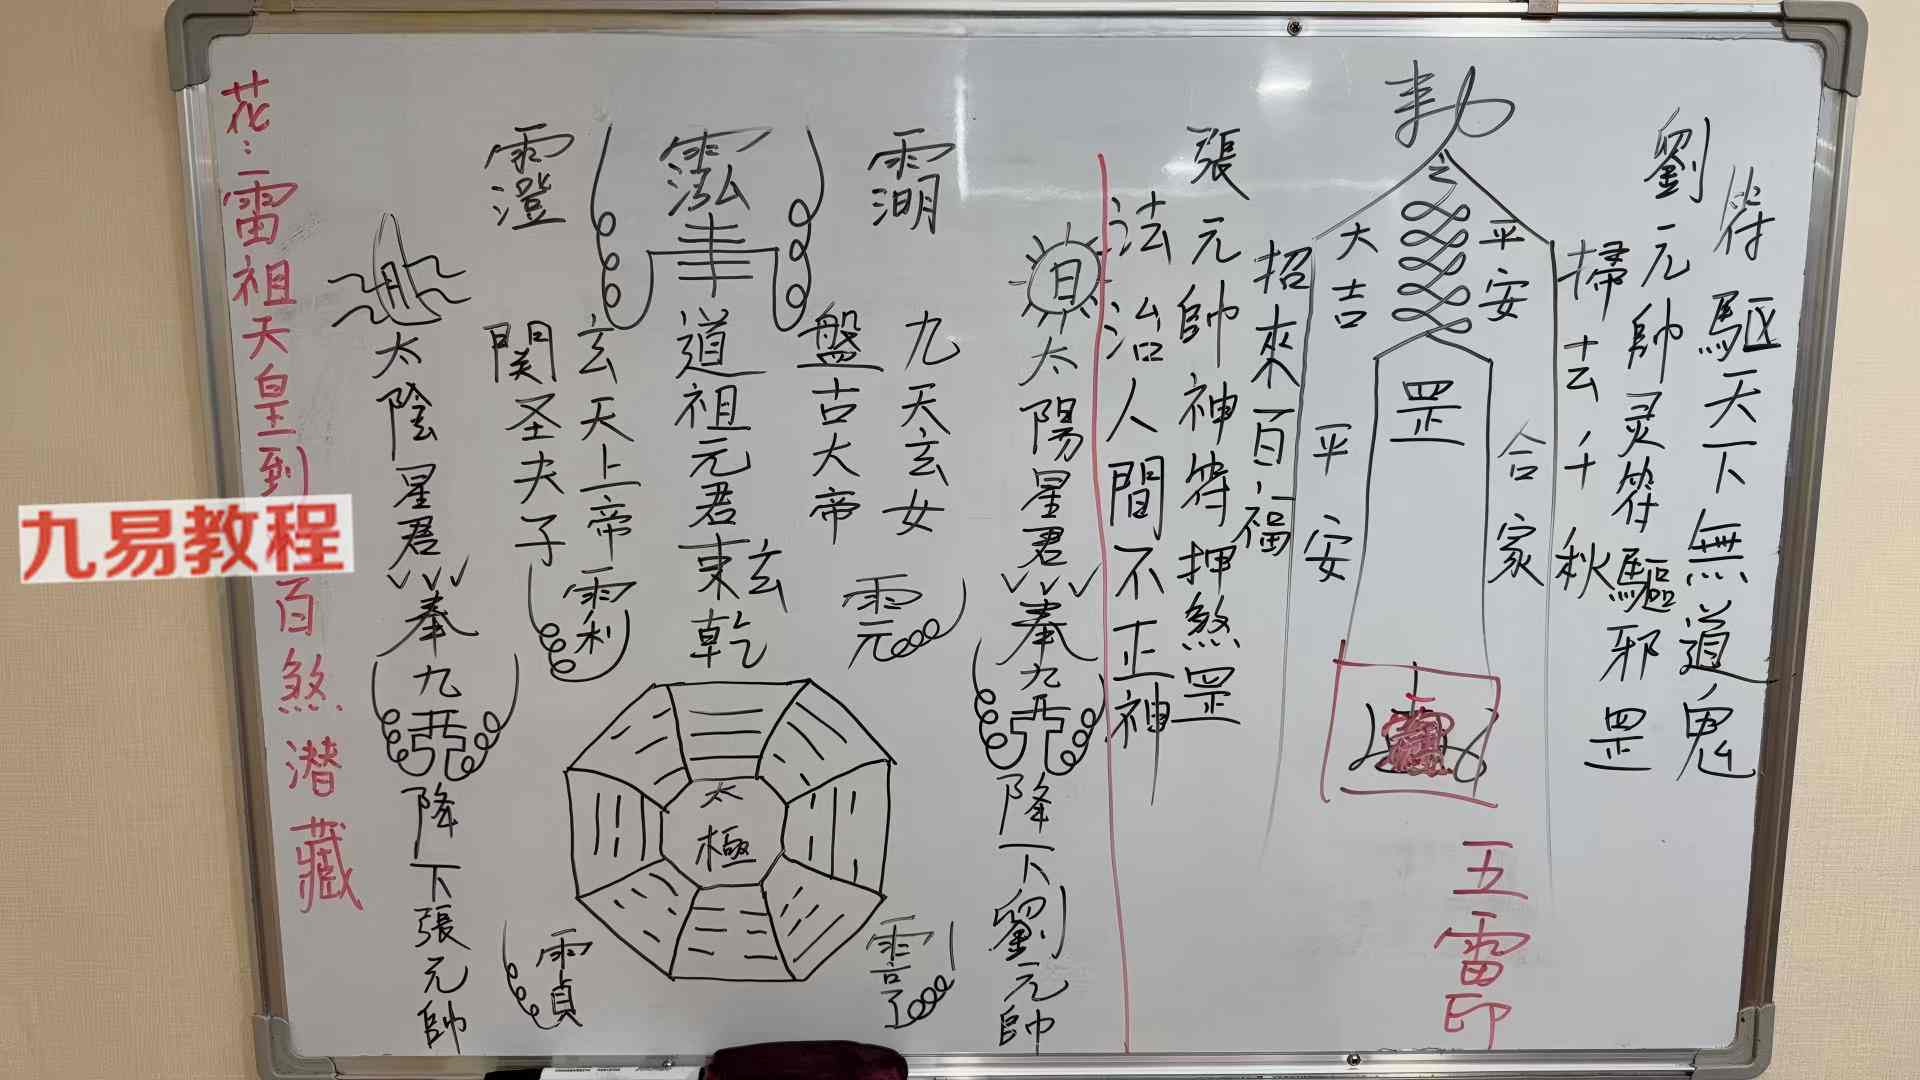 符驅天下無道鬼
劉元帥灵符驅邪罡
掃去千秋
勅
平安
大吉
合家
平安
罡
招來百福
張元帥神符押煞罡
法治人間不正神
五雷印
日
太陽星君
奉九
降下劉元帥
九天玄女
盤古大帝
道祖元君
玄天上帝
関圣夫子
太極
月
太陰星君
奉九
降下張元帥
花:雷祖天皇到
百煞潜藏
九易教程